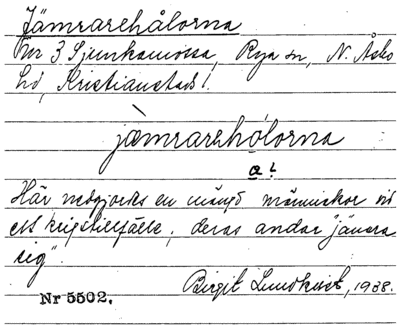 Jämrarehålorna
Nr 3 Sjunkamossa, Rya sn, N. Åsbo
hd, Kristianstads l.
jæmrarehólorna
a!
Här nedgjordes en mängd människor vid
ett krigstillfälle, deras andar "jämra
sig".
Birgit Lundkvist, 1938.
Nr 5502.